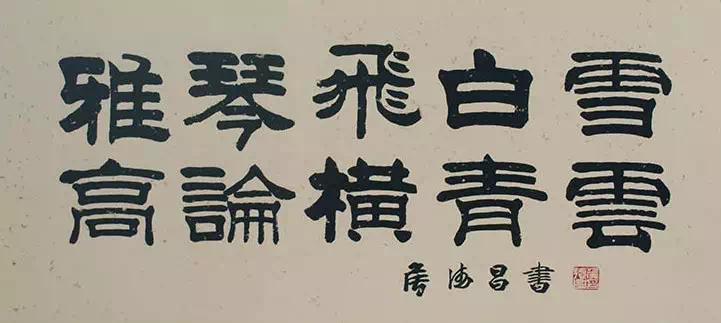 雅琴飛白雪
高論橫青雲
房海昌書